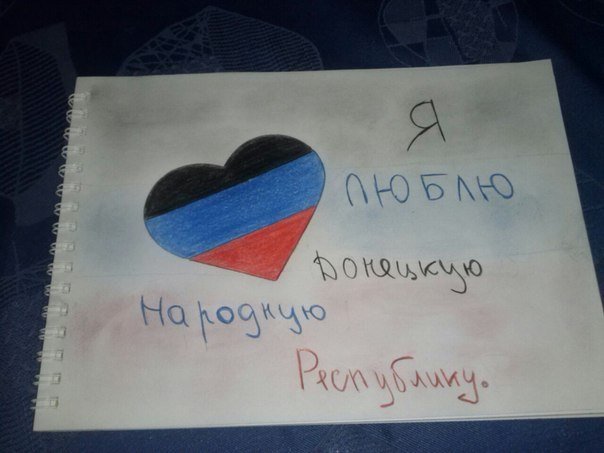 Я
ЛЮБЛЮ
Донецкую
Народную
Республику.